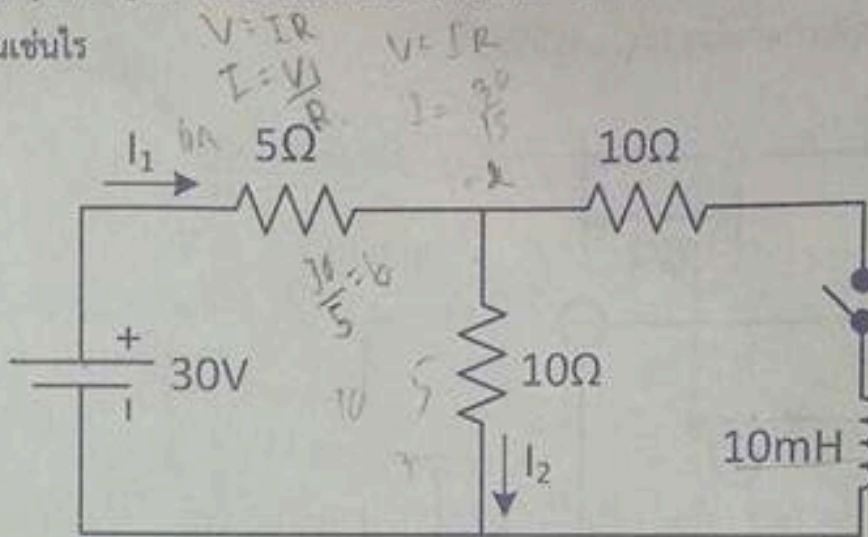 นเช่นไร
V = IR
I = V/R
V = IR
I = 30/15
I₁
5Ω
10Ω
30/5 = 6
+
30V
10Ω
I₂
10mH